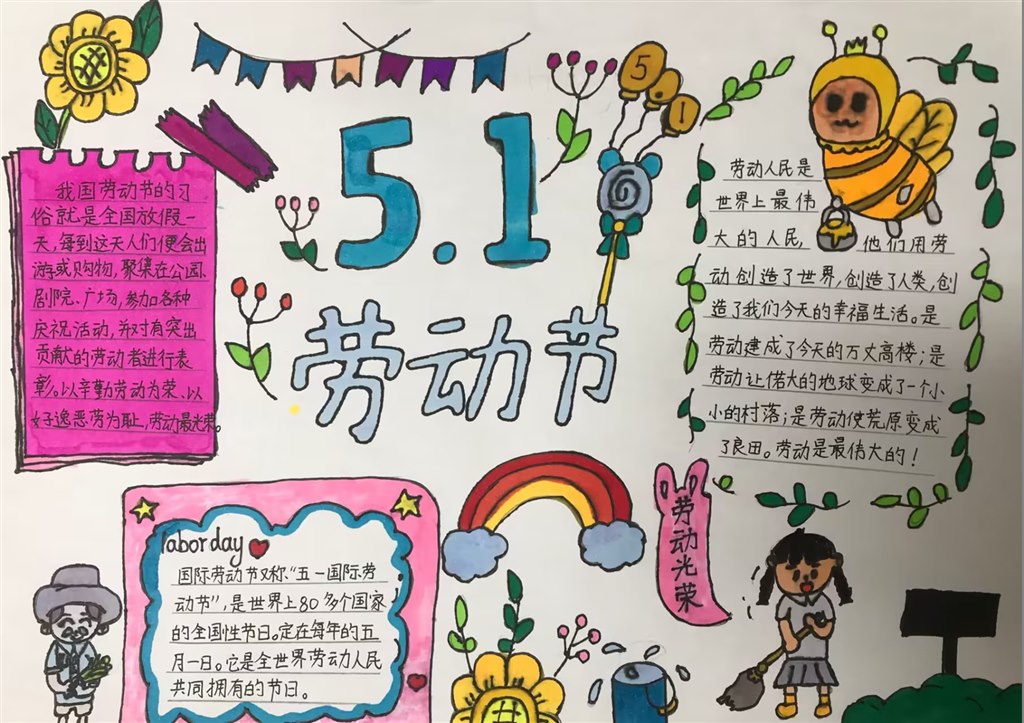 5.1
5.1
劳动节
我国劳动节的习
俗就是全国放假一
天，每到这天人们便会出
游或购物，聚集在公园、
剧院、广场，参加各种
庆祝活动，并对有突出
贡献的劳动者进行表
彰。以辛勤劳动为荣、以
好逸恶劳为耻，劳动最光荣。
劳动人民是
世界上最伟
大的人民，他们用劳
动创造了世界，创造了人类，创
造了我们今天的幸福生活。是
劳动建成了今天的万丈高楼；是
劳动让偌大的地球变成了一个小
小的村落；是劳动使荒原变成
了良田。劳动是最伟大的！
labor day
国际劳动节又称“五一国际劳
动节”，是世界上80多个国家
的全国性节日。定在每年的五
月一日。它是全世界劳动人民
共同拥有的节日。
劳动光荣